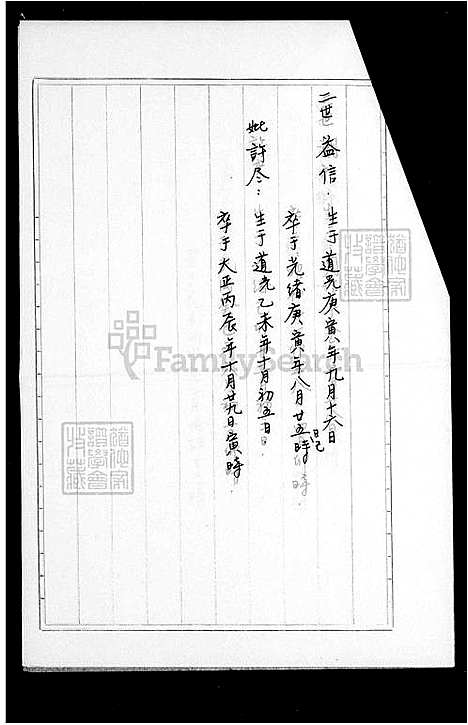 二世 益信．生于道光庚寅年九月十六日
卒于光緒庚寅年八月廿五日巳時
妣許尽：生于道光乙未年十月初五日．
卒于大正丙辰年十月廿九日寅時．
FamilySearch